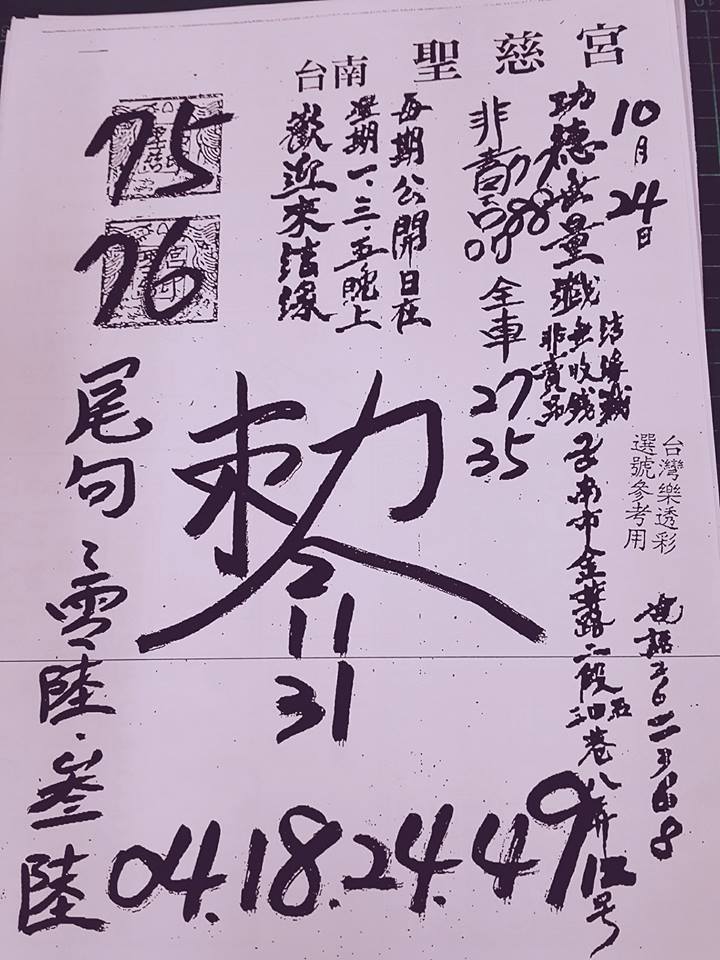 台南 聖慈宮
10月24日
功德無量
結緣
無收錢
非賣品
台灣樂透彩
選號參考用
南市金華路二段
巷
12号
全車
27
35
每期公開日在
星期一、三、五晚上
歡迎來結緣
75
76
敕令
11
31
尾句
零陸、叁陸
04.18.24.49